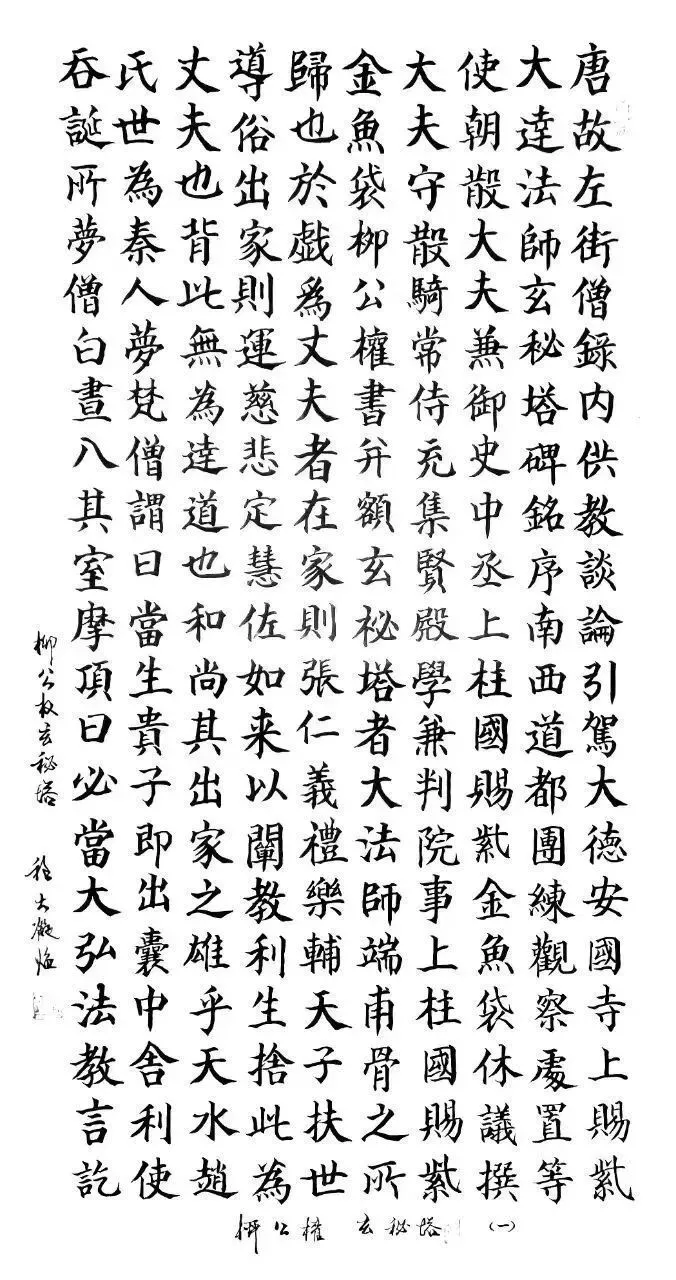 唐故左街僧錄内供教談論引駕大德安國寺上賜紫
大達法師玄秘塔碑銘序南西道都團練觀察處置等
使朝散大夫兼御史中丞上柱國賜紫金魚袋休議撰
大夫守散騎常侍充集賢殿學兼判院事上柱國賜紫
金魚袋柳公權書弁額玄祕塔者大法師端甫骨之所
歸也於戲爲丈夫者在家則張仁義禮樂輔天子扶世
導俗出家則運慈悲定慧佐如来以闡教利生捨此為
丈夫也背此無為達道也和尚其出家之雄乎天水趙
氏世為秦人夢梵僧謂曰當生貴子即出囊中舍利使
吞誕所夢僧白晝入其室摩頂曰必當大弘法教言訖
柳公权玄秘塔
柳公權 玄秘塔 (一)